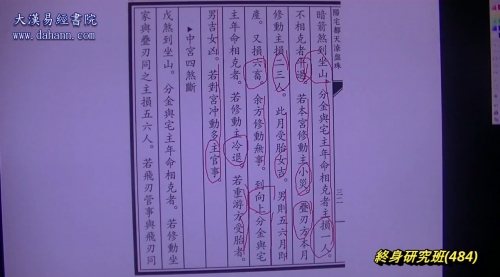 大漢易經書院
www.dahann.com
陽宅都天滾盤珠
三二
暗箭煞到坐山。分金與宅主年命相克者主損一人。
不相克者平過。若本宮修動主小災。疊刃方本月
修動主損二三人。此月受胎女吉。男則五六月即
產。又損六畜。余方修動無事。到向上分金與宅
主年命相克者。若修動主冷退。若重游方受胎者。
男吉女凶。若對宮冲動多主官事。
中宮四煞斷
戊煞到坐山。分金與宅主年命相克者。若修動坐
家與疊刃同之主損五六人。若飛刃管事與飛刃同
終身研究班(484)